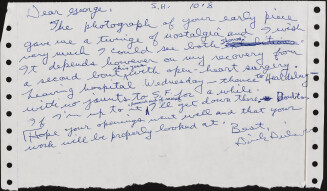 Dear George, S.H. 10/8
The photograph of your early piece
gave me a twinge of nostalgia and I wish
very much I could see both
It depends however on my recovery from
a record bout with open-heart surgery.
Leaving hospital Wednesday — thence to
with no jaunts to S.F. for a while.
If I'm up to it I'll get down there.
Hope your openings went well and that your
work will be properly looked at.
Best,